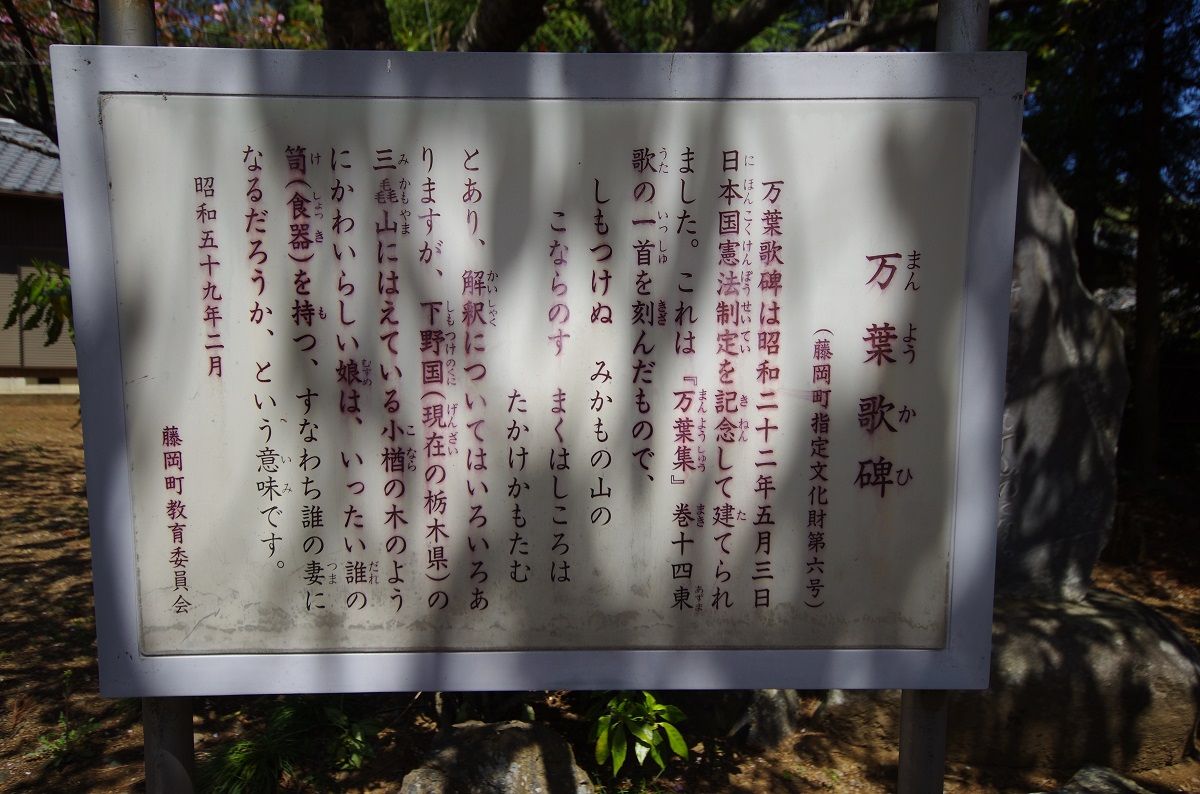 万葉歌碑
(藤岡町指定文化財第六号)
万葉歌碑は昭和二十二年五月三日
日本国憲法制定を記念して建てられ
ました。これは『万葉集』巻十四東
歌の一首を刻んだもので、
しもつけぬ みかもの山の
こならのす まくはしころは
たかけかもたむ
とあり、解釈についてはいろいろあ
りますが、下野国(現在の栃木県)の
三毳山にはえている小楢の木のよう
にかわいらしい娘は、いったい誰の
笥(食器)を持つ、すなわち誰の妻に
なるだろうか、という意味です。
昭和五十九年二月
藤岡町教育委員会